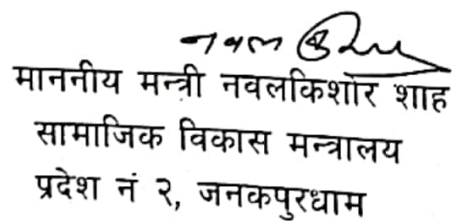 नवल
माननीय मन्त्री नवलकिशोर शाह
सामाजिक विकास मन्त्रालय
प्रदेश नं २, जनकपुरधाम